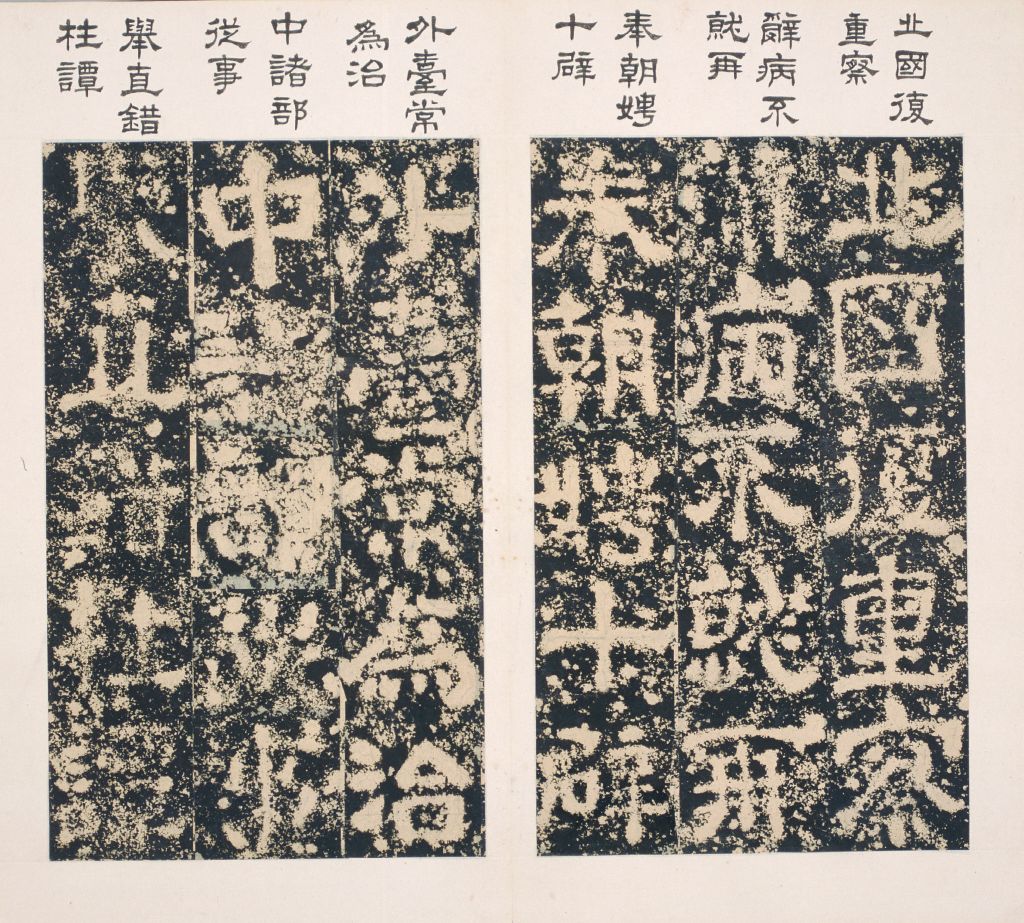 北國復
重察
辭病不
就再
奉朝娉
十辟
北國復重察
辭病不就再
奉朝娉十辟
外臺常
為治
中諸部
從事
舉直錯
枉譚
外臺常為治
中諸部從事
舉直錯枉譚